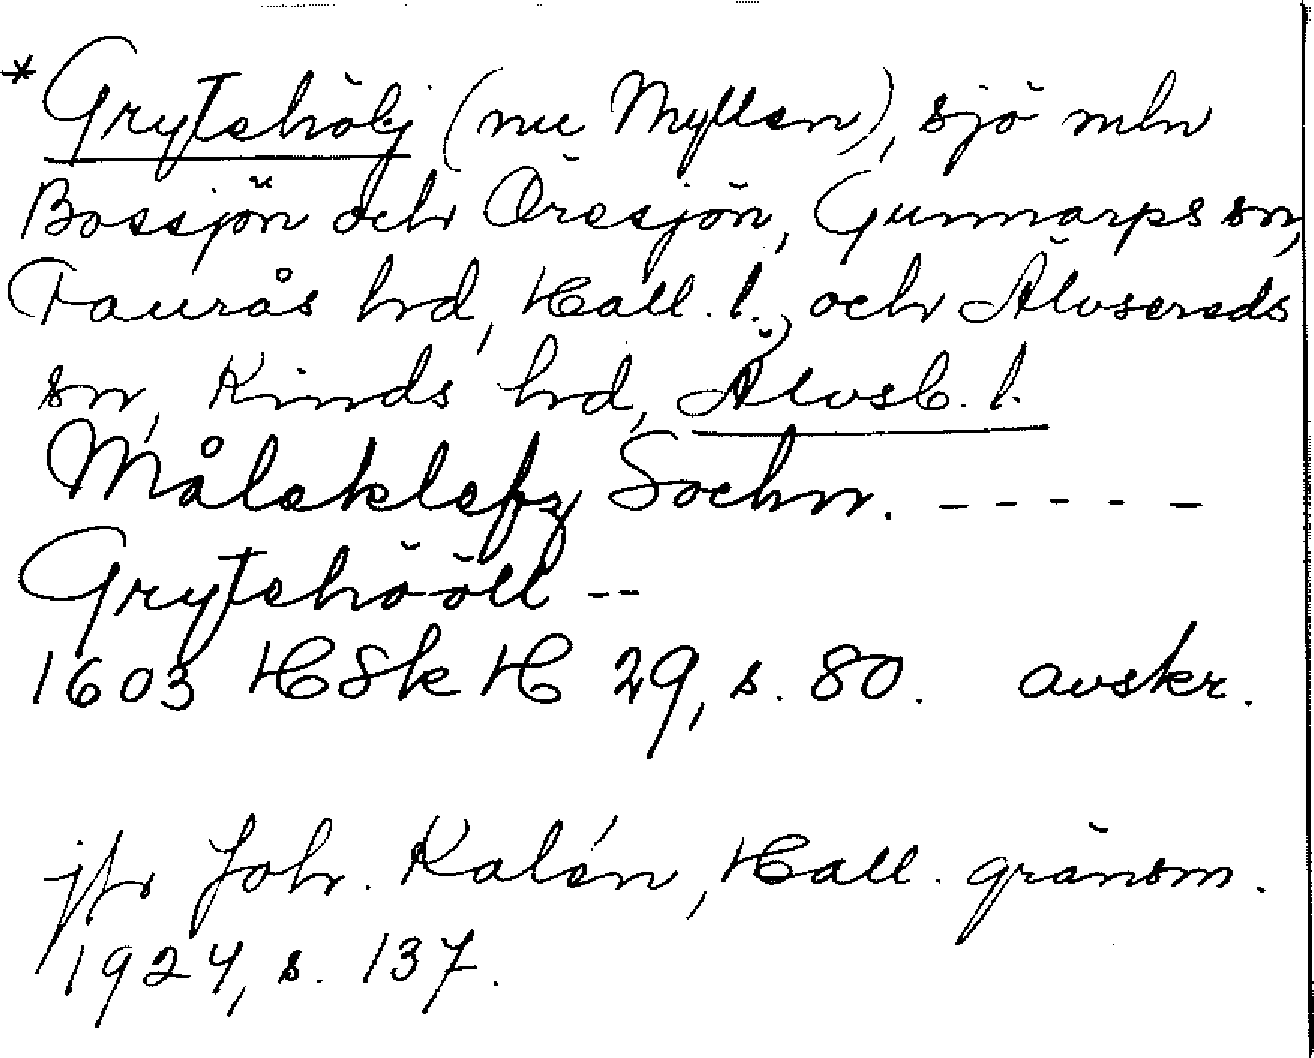 *Grytehölj (nu Myllen), sjö mln
Bossjön och Öresjön, Gunnarps sn,
Faurås hd, Hall. l., och Älvsereds
sn, Kinds hd, Älvsb. l.
Måleklefz Sochn. - - - - -
Grytehööll --
1603 HSkH 29, s. 80. avskr.
jfr Joh. Kalén, Hall. gränsm.
1924, s. 137.